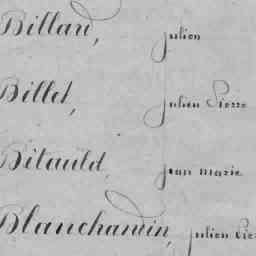 Billard, Julien
Billet, Julien Pierre
Bitauld, Jean Marie
Blanchandin, Julien